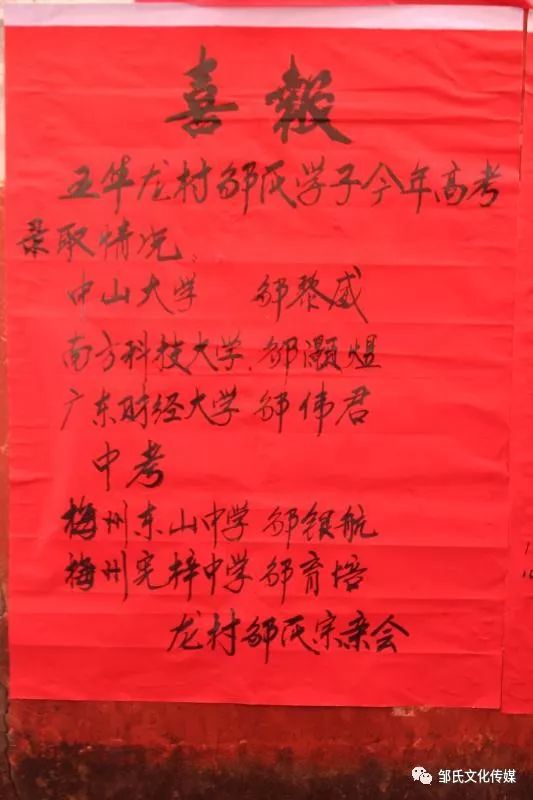 喜報
五华龙村邹氏学子今年高考
录取情况。
中山大学 邹黎威
南方科技大学 邹灏煜
广东财经大学 邹伟君
中考
梅州东山中学 邹银航
梅州宪梓中学 邹育培
龙村邹氏宗亲会
邹氏文化传媒